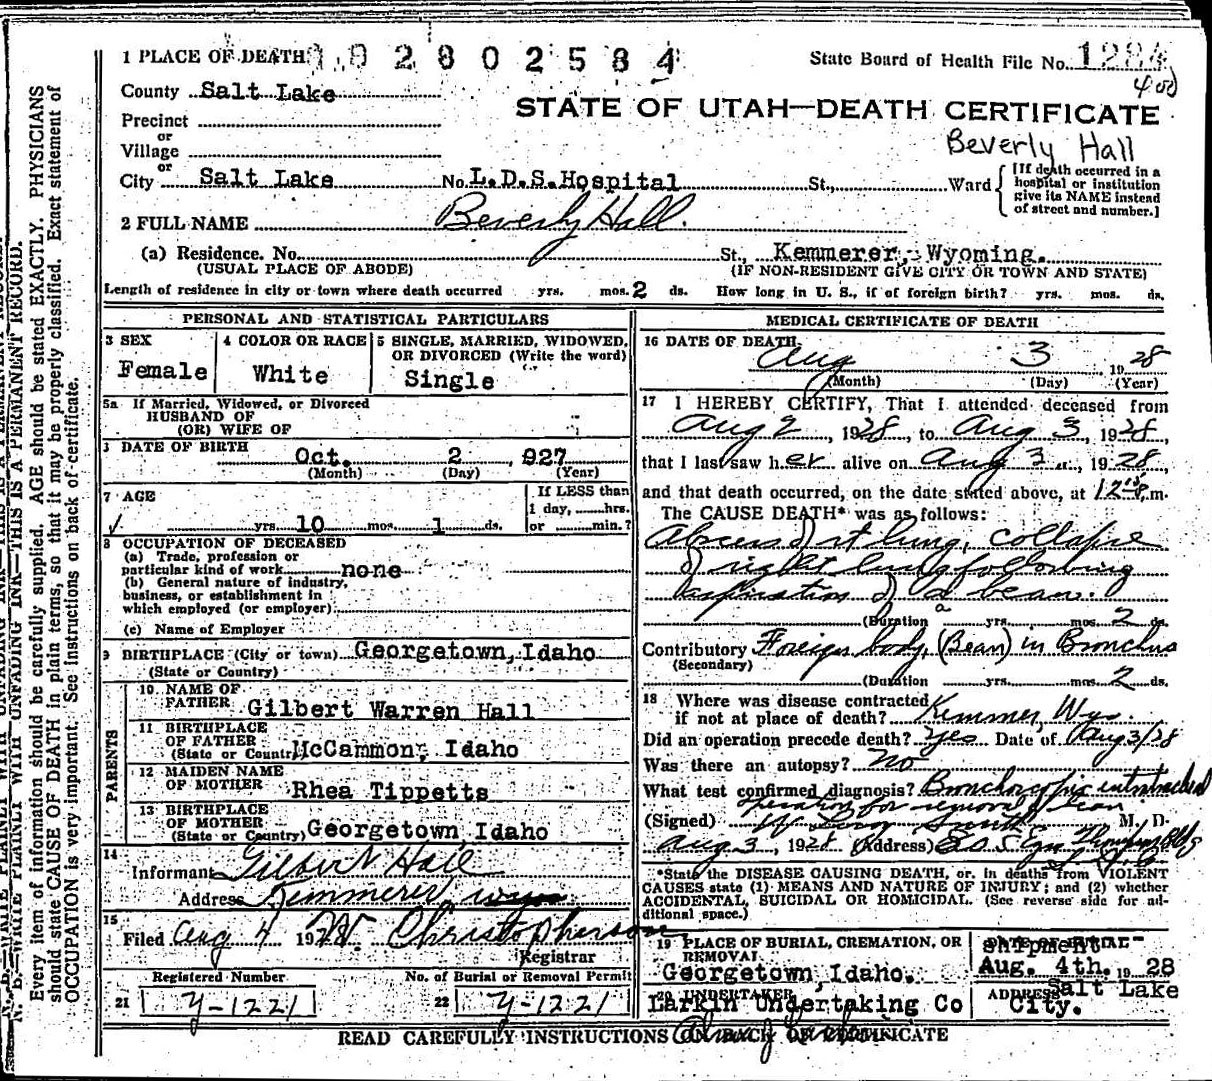 1 PLACE OF DEATH 192802584
State Board of Health File No. 1284
400
County Salt Lake
STATE OF UTAH—DEATH CERTIFICATE
Precinct
or
Village
Beverly Hall
or
City Salt Lake No. L.D.S. Hospital St., Ward
[If death occurred in a
hospital or institution
give its NAME instead
of street and number.]
2 FULL NAME Beverly Hall.
(a) Residence. No. St., Kemmerer, Wyoming.
(USUAL PLACE OF ABODE) (IF NON-RESIDENT GIVE CITY OR TOWN AND STATE)
Length of residence in city or town where death occurred yrs. mos. 2 ds. How long in U. S., if of foreign birth? yrs. mos. ds.
PERSONAL AND STATISTICAL PARTICULARS
3 SEX
Female
4 COLOR OR RACE
White
5 SINGLE, MARRIED, WIDOWED,
OR DIVORCED (Write the word)
Single
5a If Married, Widowed, or Divorced
HUSBAND OF
(OR) WIFE OF
DATE OF BIRTH
Oct. 2, 927
(Month) (Day) (Year)
7 AGE
yrs. 10 mos. 1 ds.
If LESS than
1 day, hrs.
or min.?
8 OCCUPATION OF DECEASED
(a) Trade, profession or
particular kind of work none
(b) General nature of industry,
business, or establishment in
which employed (or employer)
(c) Name of Employer
9 BIRTHPLACE (City or town) Georgetown, Idaho
(State or Country)
PARENTS
10 NAME OF
FATHER Gilbert Warren Hall
11 BIRTHPLACE
OF FATHER
(State or Country) McCammon, Idaho
12 MAIDEN NAME
OF MOTHER Rhea Tippetts
13 BIRTHPLACE
OF MOTHER
(State or Country) Georgetown Idaho
14
Informant Gilbert Hall
Address Kemmerer Wyo
15
Filed Aug 4 1928 W. Christopherson
Registrar
Registered Number No. of Burial or Removal Permit
21 Y-1221 22 Y-1221
MEDICAL CERTIFICATE OF DEATH
16 DATE OF DEATH
Aug 3 1928
(Month) (Day) (Year)
17 I HEREBY CERTIFY, That I attended deceased from
Aug 2, 1928, to Aug 3, 1928,
that I last saw her alive on Aug 3, 1928,
and that death occurred, on the date stated above, at 12 m.
The CAUSE DEATH* was as follows:
Abcess of rt lung, collapse
of right lung following
aspiration of a bean.
(Duration yrs. mos. 2 ds.
Contributory Foreign body (Bean) in Bronchus
(Secondary)
(Duration yrs. mos. 2 ds.
18 Where was disease contracted
if not at place of death? Kemmer, Wyo.
Did an operation precede death? Yes Date of Aug 3/28
Was there an autopsy? No
What test confirmed diagnosis? Bronchoscopic
operation for removal of bean
(Signed) Smith M. D.
Aug 3, 1928 (Address)
*State the DISEASE CAUSING DEATH, or, in deaths from VIOLENT
CAUSES state (1) MEANS AND NATURE OF INJURY; and (2) whether
ACCIDENTAL, SUICIDAL OR HOMICIDAL. (See reverse side for ad-
ditional space.)
19 PLACE OF BURIAL, CREMATION, OR
REMOVAL
Georgetown, Idaho.
DATE OF BURIAL
Shipment
Aug. 4th. 1928
20 UNDERTAKER
Larkin Undertaking Co
ADDRESS Salt Lake
City.
READ CAREFULLY INSTRUCTIONS ON BACK OF CERTIFICATE
N. B.—WRITE PLAINLY WITH UNFADING INK—THIS IS A PERMANENT RECORD.
Every item of information should be carefully supplied. AGE should be stated EXACTLY. PHYSICIANS
should state CAUSE OF DEATH in plain terms, so that it may be properly classified. Exact statement of
OCCUPATION is very important. See instructions on back of certificate.